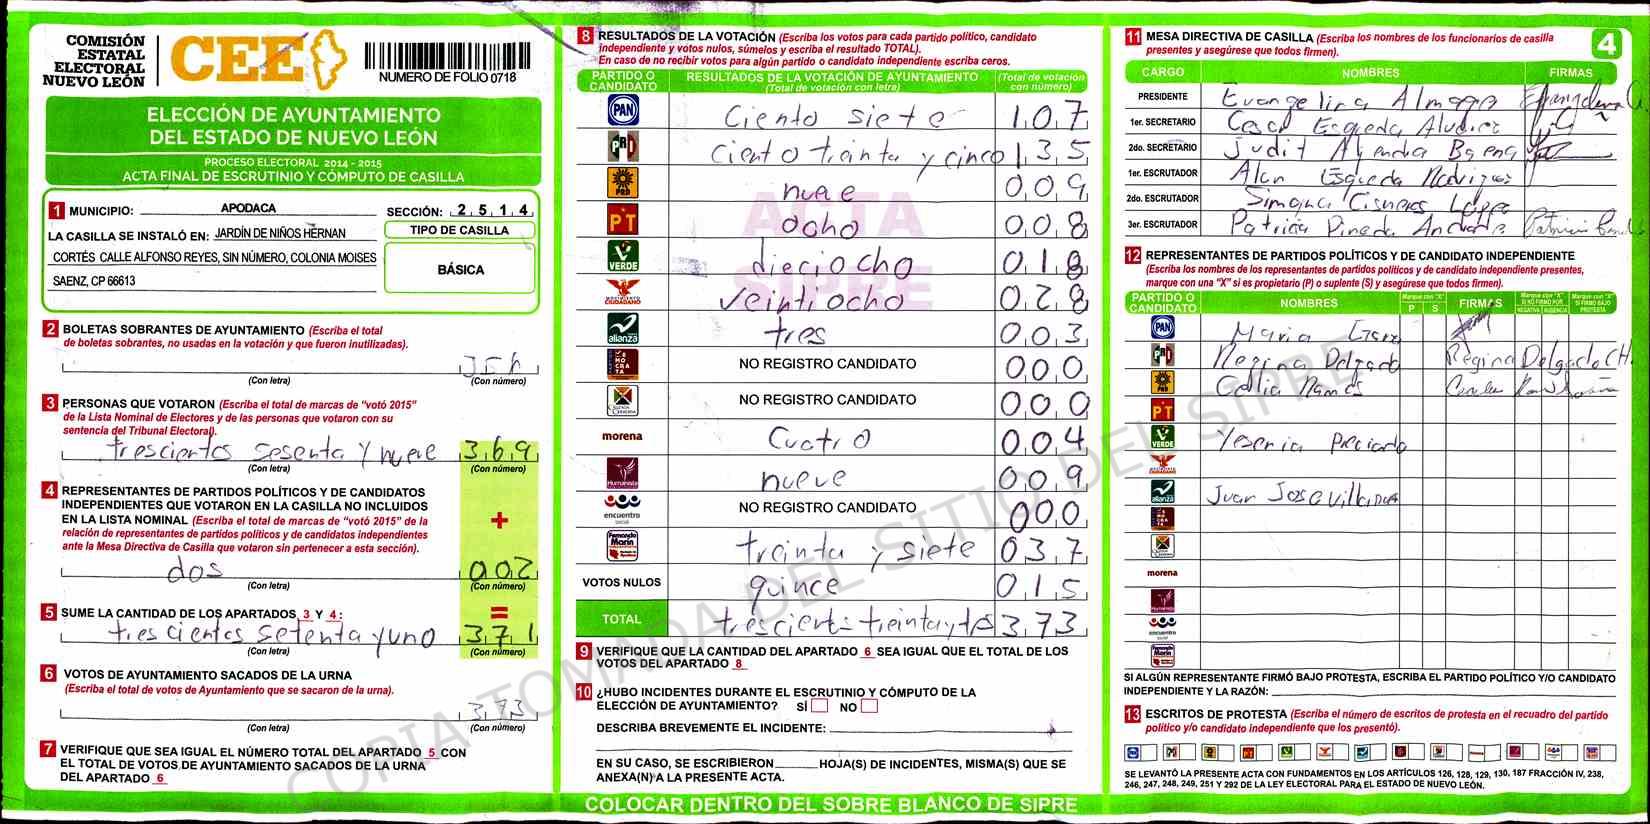 COMISIÓN
ESTATAL
ELECTORAL
NUEVO LEÓN
CEE
NUMERO DE FOLIO 0718
ELECCIÓN DE AYUNTAMIENTO
DEL ESTADO DE NUEVO LEÓN
PROCESO ELECTORAL 2014 - 2015
ACTA FINAL DE ESCRUTINIO Y CÓMPUTO DE CASILLA
1 MUNICIPIO: APODACA SECCIÓN: 2514
LA CASILLA SE INSTALÓ EN: JARDÍN DE NIÑOS HERNAN
CORTÉS CALLE ALFONSO REYES, SIN NÚMERO, COLONIA MOISES
SAENZ, CP 66613
TIPO DE CASILLA
BÁSICA
2 BOLETAS SOBRANTES DE AYUNTAMIENTO (Escriba el total
de boletas sobrantes, no usadas en la votación y que fueron inutilizadas).
(Con letra) (Con número)
3 PERSONAS QUE VOTARON (Escriba el total de marcas de "votó 2015"
de la Lista Nominal de Electores y de las personas que votaron con su
sentencia del Tribunal Electoral).
trescientos sesenta y nueve 369
(Con letra) (Con número)
4 REPRESENTANTES DE PARTIDOS POLÍTICOS Y DE CANDIDATOS
INDEPENDIENTES QUE VOTARON EN LA CASILLA NO INCLUIDOS
EN LA LISTA NOMINAL (Escriba el total de marcas de "votó 2015" de la
relación de representantes de partidos políticos y de candidatos independientes
ante la Mesa Directiva de Casilla que votaron sin pertenecer a esta sección).
+
dos 002
(Con letra) (Con número)
5 SUME LA CANTIDAD DE LOS APARTADOS 3 Y 4: =
trescientos setenta y uno 371
(Con letra) (Con número)
6 VOTOS DE AYUNTAMIENTO SACADOS DE LA URNA
(Escriba el total de votos de Ayuntamiento que se sacaron de la urna).
373
(Con letra) (Con número)
7 VERIFIQUE QUE SEA IGUAL EL NÚMERO TOTAL DEL APARTADO 5 CON
EL TOTAL DE VOTOS DE AYUNTAMIENTO SACADOS DE LA URNA
DEL APARTADO 6
8 RESULTADOS DE LA VOTACIÓN (Escriba los votos para cada partido político, candidato
independiente y votos nulos, súmelos y escriba el resultado TOTAL).
En caso de no recibir votos para algún partido o candidato independiente escriba ceros.
PARTIDO O CANDIDATO RESULTADOS DE LA VOTACIÓN DE AYUNTAMIENTO (Total de votación con letra) (Total de votación con número)
PAN Ciento siete 107
PRI ciento treinta y cinco 135
PRD nueve 009
PT ocho 008
VERDE dieciocho 018
MOVIMIENTO CIUDADANO veintiocho 028
alianza tres 003
NO REGISTRO CANDIDATO 000
NO REGISTRO CANDIDATO 000
morena Cuatro 004
Humanista nueve 009
encuentro social NO REGISTRO CANDIDATO 000
Fernando Marín treinta y siete 037
VOTOS NULOS quince 015
TOTAL 373
ACTA
SIPRE
COPIA TOMADA DEL SITIO DEL SIPRE
9 VERIFIQUE QUE LA CANTIDAD DEL APARTADO 6 SEA IGUAL QUE EL TOTAL DE LOS
VOTOS DEL APARTADO 8
10 ¿HUBO INCIDENTES DURANTE EL ESCRUTINIO Y CÓMPUTO DE LA
ELECCIÓN DE AYUNTAMIENTO? SÍ NO
DESCRIBA BREVEMENTE EL INCIDENTE:
EN SU CASO, SE ESCRIBIERON HOJA(S) DE INCIDENTES, MISMA(S) QUE SE
ANEXA(N) A LA PRESENTE ACTA.
COLOCAR DENTRO DEL SOBRE BLANCO DE SIPRE
11 MESA DIRECTIVA DE CASILLA (Escriba los nombres de los funcionarios de casilla
presentes y asegúrese que todos firmen).
4
CARGO NOMBRES FIRMAS
PRESIDENTE Evangelina
1er. SECRETARIO Cesar Esqueda
2do. SECRETARIO Judit
1er. ESCRUTADOR Alan Esqueda
2do. ESCRUTADOR Cisneros
3er. ESCRUTADOR Patricia Pineda Andrade
12 REPRESENTANTES DE PARTIDOS POLÍTICOS Y DE CANDIDATO INDEPENDIENTE
(Escriba los nombres de los representantes de partidos políticos y de candidato independiente presentes,
marque con una "X" si es propietario (P) o suplente (S) y asegúrese que todos firmen).
PARTIDO O CANDIDATO NOMBRES Marque con "X" P S FIRMAS Marque con "X" SI NO FIRMÓ POR: NEGATIVA AUSENCIA Marque con "X" SI FIRMÓ BAJO PROTESTA
PAN Maria
PRI Regina Delgado Regina Delgado CH.
PRD Ramos
PT
VERDE Yesenia Preciado
alianza Juan Jose
morena
Humanista
encuentro social
Fernando Marín
SI ALGÚN REPRESENTANTE FIRMÓ BAJO PROTESTA, ESCRIBA EL PARTIDO POLÍTICO Y/O CANDIDATO
INDEPENDIENTE Y LA RAZÓN:
13 ESCRITOS DE PROTESTA (Escriba el número de escritos de protesta en el recuadro del partido
político y/o candidato independiente que los presentó).
SE LEVANTÓ LA PRESENTE ACTA CON FUNDAMENTOS EN LOS ARTÍCULOS 126, 128, 129, 130, 187 FRACCIÓN IV, 238,
246, 247, 248, 249, 251 Y 292 DE LA LEY ELECTORAL PARA EL ESTADO DE NUEVO LEÓN.